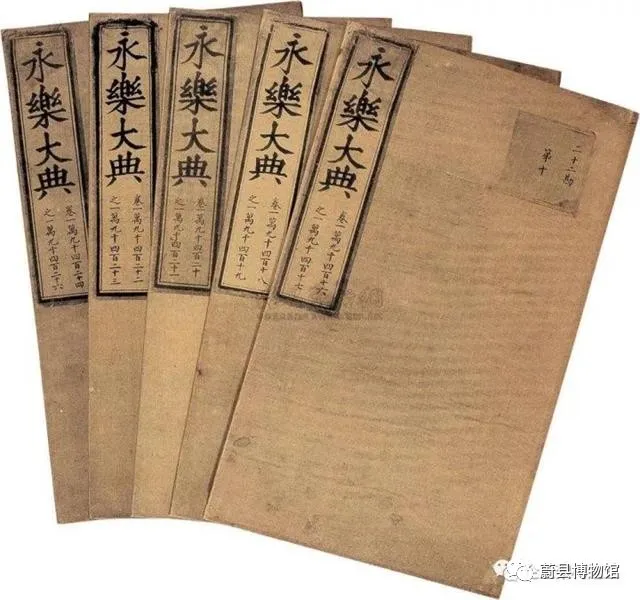 永樂大典
卷一萬九千四百二十四
之一萬九千四百二十六
永樂大典
卷一萬九千四百二十二
之一萬九千四百二十三
永樂大典
卷一萬九千四百二十
之一萬九千四百二十一
永樂大典
卷一萬九千四百十八
之一萬九千四百十九
永樂大典
卷一萬九千四百十六
之一萬九千四百十七
二十二勘
第十
蔚县博物馆